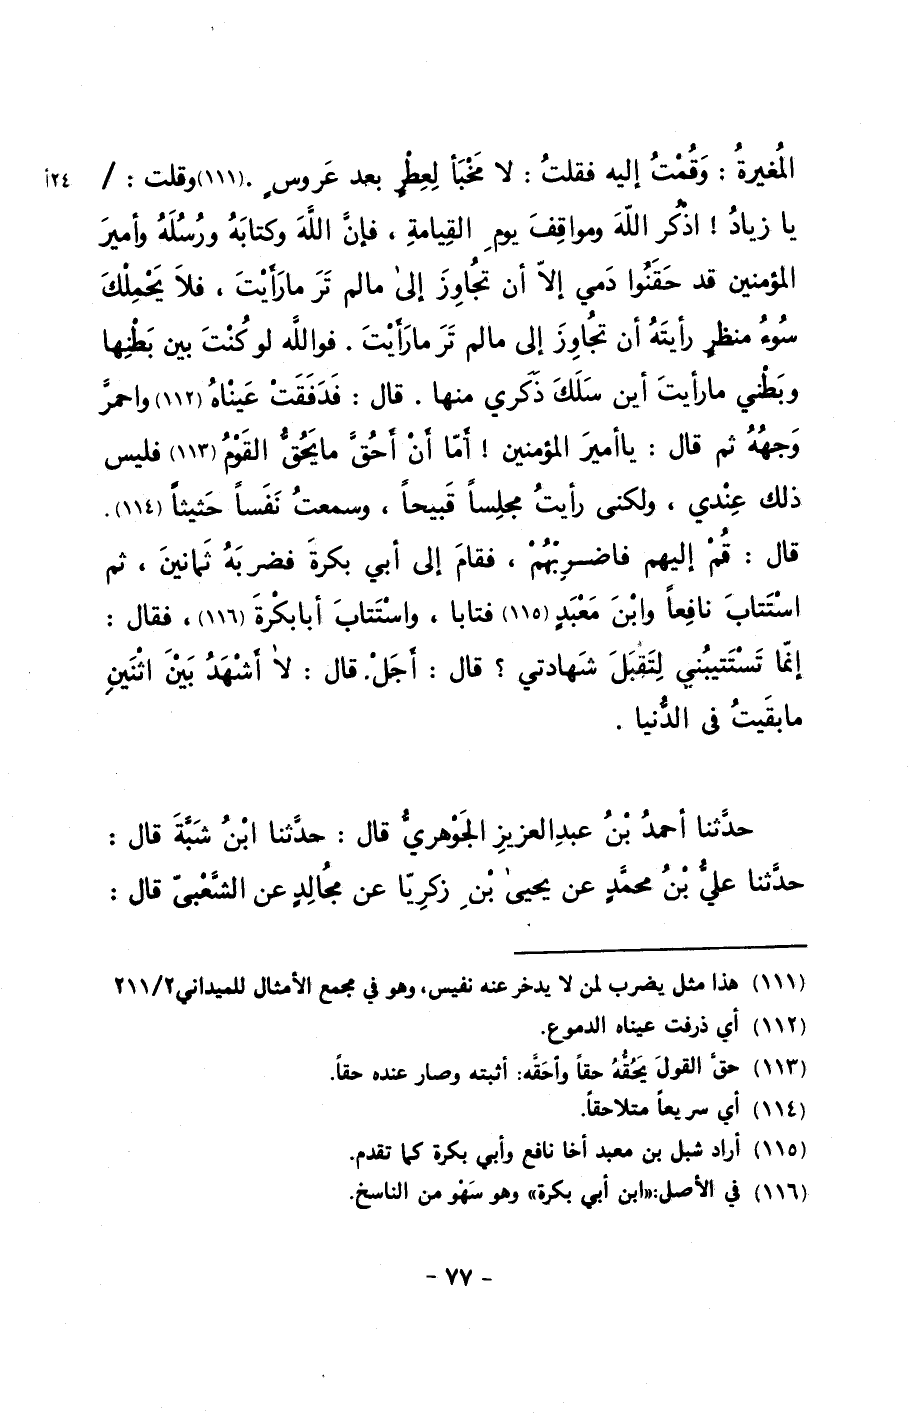 المُغيرةُ : وَقُمْتُ إليه فقلتُ : لا مَخْبَأَ لِعِطْرٍ بعد عَروسٍ .(١١١)وقلت : / ٢٤أ
يا زيادُ ! اذكُر اللّهَ ومواقِفَ يومِ القِيامةِ ، فإنَّ اللَّهَ وكتابَهُ ورُسُلَهُ وأميرَ
المؤمنين قد حَقَنُوا دَمي إلاّ أن تَجُاوِزَ إلىٰ مالم تَرَ مارَأَيْتَ ، فلاَ يَحْمِلْكَ
سُوءُ منظرٍ رأيتَهُ أن تَجُاوِزَ إلى مالم تَرَ مارَأَيْتَ . فواللَّه لو كُنْتَ بين بَطْنِها
وبَطْني مارأيتَ أين سَلَكَ ذَكَري منها . قال : فَدَفَقَتْ عَينْاهُ (١١٢) واحمرَّ
وَجهُهُ ثم قال : ياأميرَ المؤمنين ! أَمّا أَنْ أَحُقَّ مايَحُقُّ القَوْمُ (١١٣) فليس
ذلك عِنْدي ، ولكنى رأيتُ مجلِساً قَبيحاً ، وسمعتُ نَفَساً حَثيثاً (١١٤).
قال : قُمْ إليهم فاضرِبْهُمْ ، فقامَ إلى أبي بكرةَ فضربَهُ ثَمانينَ ، ثم
اسْتَتابَ نافِعاً وابْنَ مَعْبَدٍ (١١٥) فتابا ، واسْتَتابَ أبابكْرةَ (١١٦) ، فقال :
إنمّا تَسْتَتيبُني لِتَقبَلَ شَهادتي ؟ قال : أَجَلْ. قال : لاٰ أَشْهَدُ بَيْنَ اثْنَينِ
مابقَيتُ فى الدُّنيا .
حدَّثنا أحمدُ بْنُ عبدِالعزيزِ الجَوْهريُّ قال : حدَّثنا ابْنُ شَبَّةَ قال :
حدَّثنا عليُّ بْنُ محمَّدٍ عن يحيىٰ بْنِ زكرِيّا عن مُجالِدٍ عن الشَّعْبىّ قال :
(١١١) هذا مثل يضرب لمن لا يدخر عنه نفيس، وهو في مجمع الأمثال للميداني٢/٢١١
(١١٢) أي ذرفت عيناه الدموع.
(١١٣) حقَّ القولَ يَحُقُّهُ حقاً وأحَقَّه: أثبته وصار عنده حقاً.
(١١٤) أي سريعاً متلاحقاً.
(١١٥) أراد شبل بن معبد أخا نافع وأبي بكرة كما تقدم.
(١١٦) في الأصل:«ابن أبي بكرة» وهو سَهْو من الناسخ.
- ٧٧ -